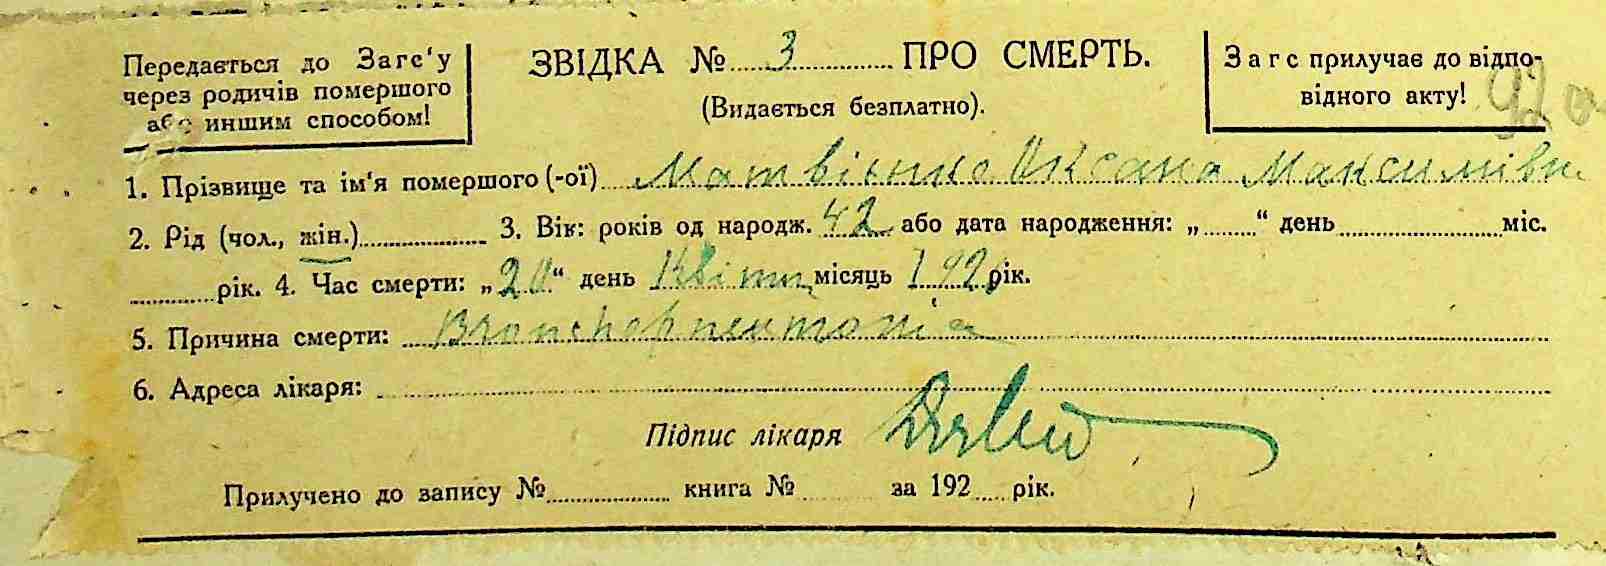 Передається до Загс'у
через родичів помершого
або иншим способом!
ЗВІДКА № 3 ПРО СМЕРТЬ.
(Видається безплатно).
Загс прилучає до відпо-
відного акту!
92
1. Прізвище та ім'я помершого (-ої) Матвієнко Оксана Максимівн
2. Рід (чол., жін.) 3. Вік: років од народж. 42 або дата народження: „ “ день міс.
рік. 4. Час смерти: „20“ день Квітн місяць 192 рік.
5. Причина смерти:
6. Адреса лікаря:
Підпис лікаря
Прилучено до запису № книга № за 192 рік.